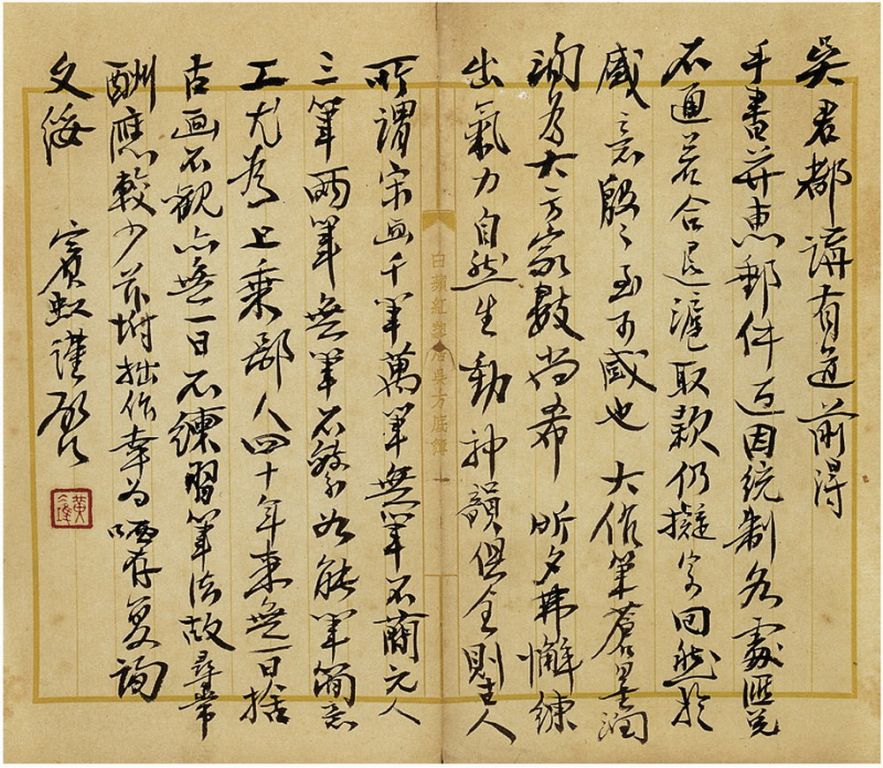 吳君都講有道前得
手書并惠郵件近因統制各處匯兌
不通若合退滬取款仍擬寄回然於
盛意殷〻至可感也 大作筆蒼墨潤
洵為大方家數尚希 昕夕弗懈練
出氣力自然生動神韻俱全則
所謂宋画千筆萬筆無筆不簡元人
三筆兩筆無筆不繁如能筆簡意
工尤為上乘鄙人四十年來無一日捨
古画不觀亦無一日不練習筆法故尋常
酬應較少茲坿拙作幸为哂存复詢
文綏 賓虹謹啟
白蘋紅蓼居吳方底簿